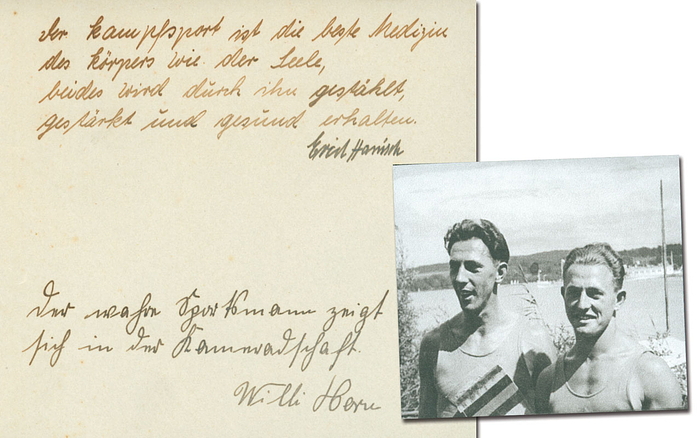 der Kampfsport ist die beste Medizin
des Körpers wie der Seele,
beides wird durch ihn gestählt,
gestärkt und gesund erhalten.
Erich Hanisch
Der wahre Sportsmann zeigt
sich in der Kameradschaft.
Willi Horn